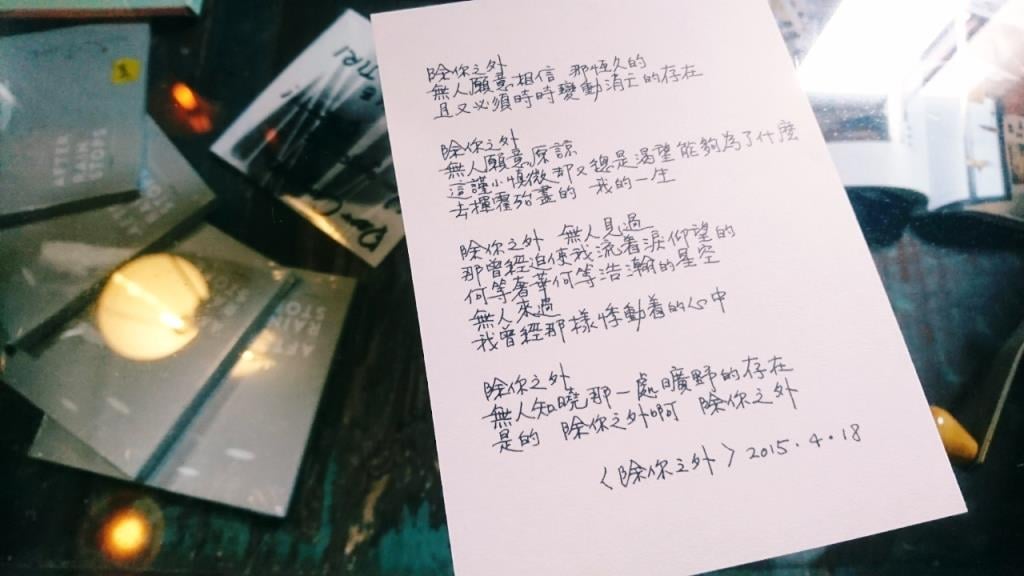 除你之外
無人願意相信 那恆久的
且又必須時時變動消亡的存在
除你之外
無人願意原諒
這謹小慎微那又總是渴望能夠為了什麼
去揮霍殆盡的 我的一生
除你之外 無人見過
那曾經迫使我流着淚仰望的
何等奢華何等浩瀚的星空
無人來過
我曾經那樣悸動着的心中
除你之外
無人知曉那一處曠野的存在
是的 除你之外啊 除你之外
〈除你之外〉2015.4.18
AFTER
RAIN
STOPS
AFTER
RAIN
STO